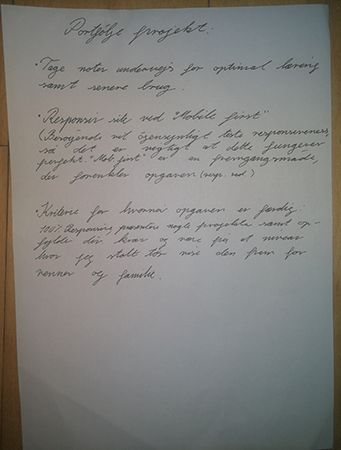 Portfølje projekt:
• Tage noter undervejs for optimal læring
samt senere brug.
• Responsiv side ved "Mobile first"
(Besøgende vil øjensynligt teste responsiveness,
så det er vigtigt at dette fungerer
perfekt. "Mob first" er en fremgangsmåde,
der forenkler opgaven (resp. ved.)
• Kriterie for hvornår opgaven er færdig:
100% Responsiv, præsentere nogle projekter samt op-
fylde krav og være på et niveau
hvor jeg stolt tør vise den frem for
venner og familie.